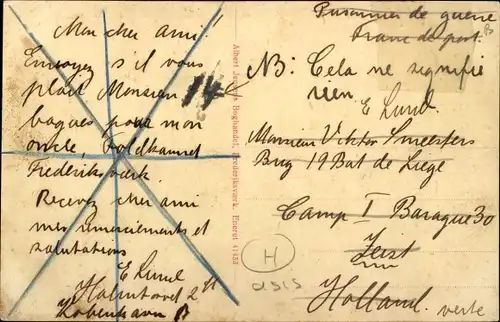 Mon cher ami!
Envoyez s'il vous
plait Monsieur 14
bagues pour mon
oncle, Toldkannet
Frederiksværk.
Recevez cher ami
mes remerciements et
salutations
E Lund
Holmtorvet 2
København B
Boghandel, Frederiksværk. Eneret
Prisonnier de guerre
Franc de port.
B
NB: Cela ne signifie
rien.
E Lund.
Monsieur Viktor Smeesters
Brug 19 Bat de Liege
Camp I Baraque 30
Zeist
Holland.
H
verte